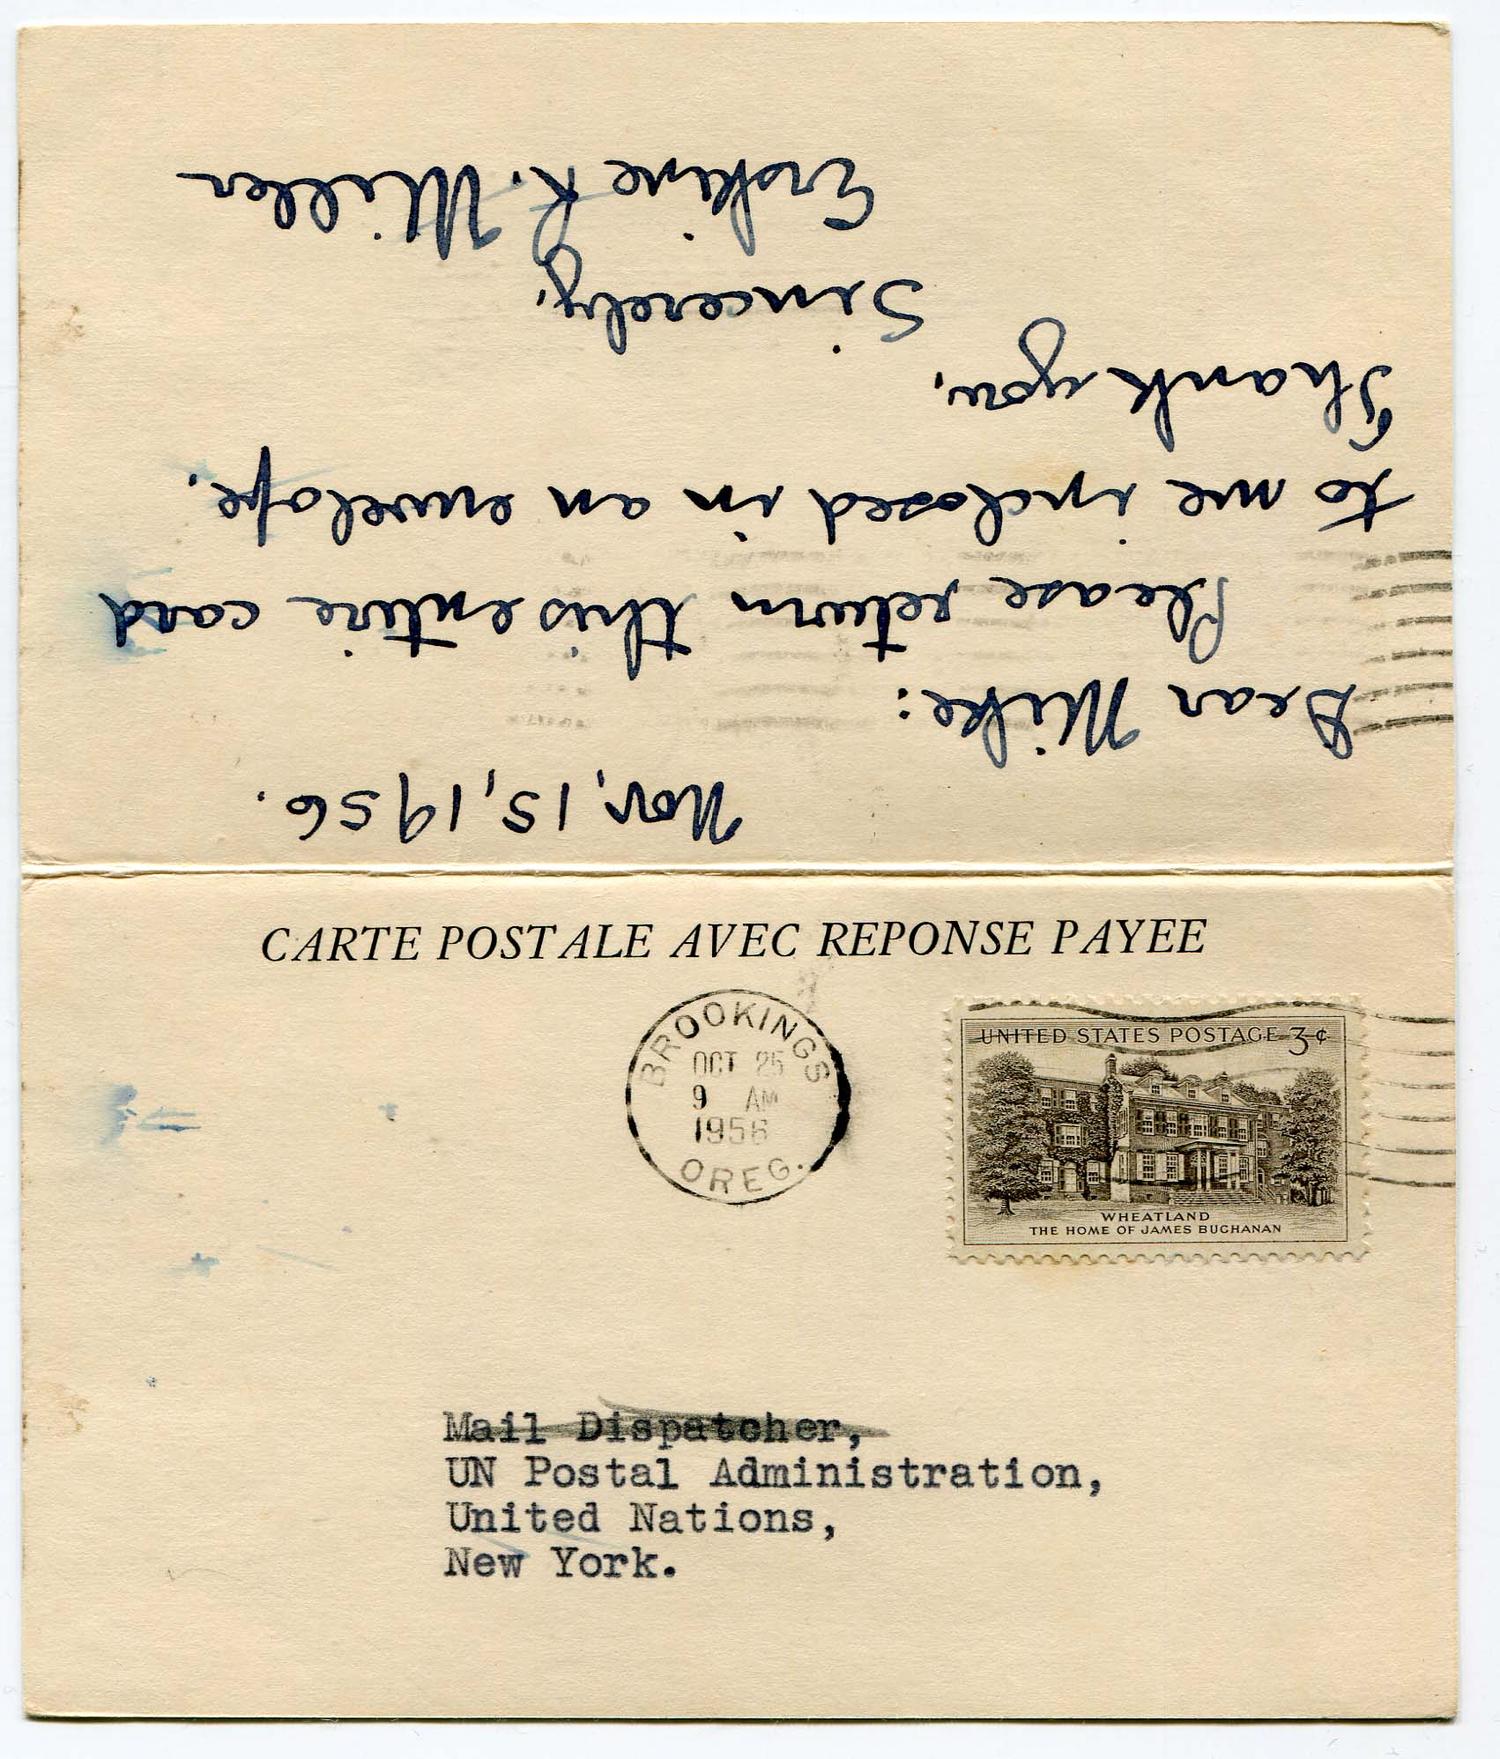 Nov. 15, 1956.
Dear Mike:
Please return this entire card
to me inclosed in an envelope.
Thank you.
Sincerely,
Erskine R. Miller
CARTE POSTALE AVEC REPONSE PAYEE
BROOKINGS
OCT 25
9 AM
1956
OREG.
UNITED STATES POSTAGE 3¢
WHEATLAND
THE HOME OF JAMES BUCHANAN
Mail Dispatcher,
UN Postal Administration,
United Nations,
New York.